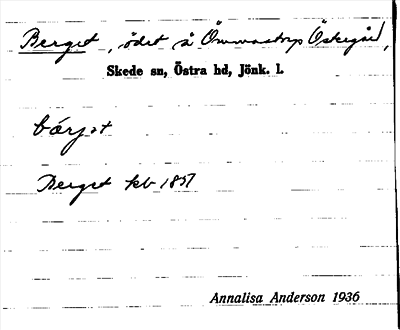 Berget, ödet å Ömmastorp Östergård,
Skede sn, Östra hd, Jönk. l.
bärjət
Berget kb 1857
Annalisa Anderson 1936